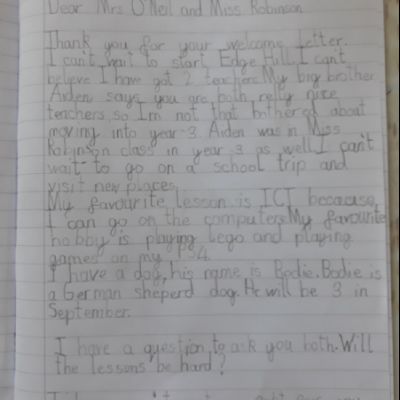 Dear Mrs O'Neil and Miss Robinson
Thank you for your welcome letter.
I can't wait to start Edge Hill. I can't
believe I have got 2 teachers. My big brother
Aiden says you are both relly nice
teachers, so I'm not that bothered about
moving into year 3. Aiden was in Miss
Robinson class in year 3 as well. I can't
wait to go on a school trip and
visit new places.
My favourite lesson is ICT because
I can go on the computers. My favourite
hobby is playing lego and playing
games on my PS4.
I have a dog, his name is Bodie. Bodie is
a German sheperd dog. He will be 3 in
September.
I have a question to ask you both. Will
the lessons be hard?